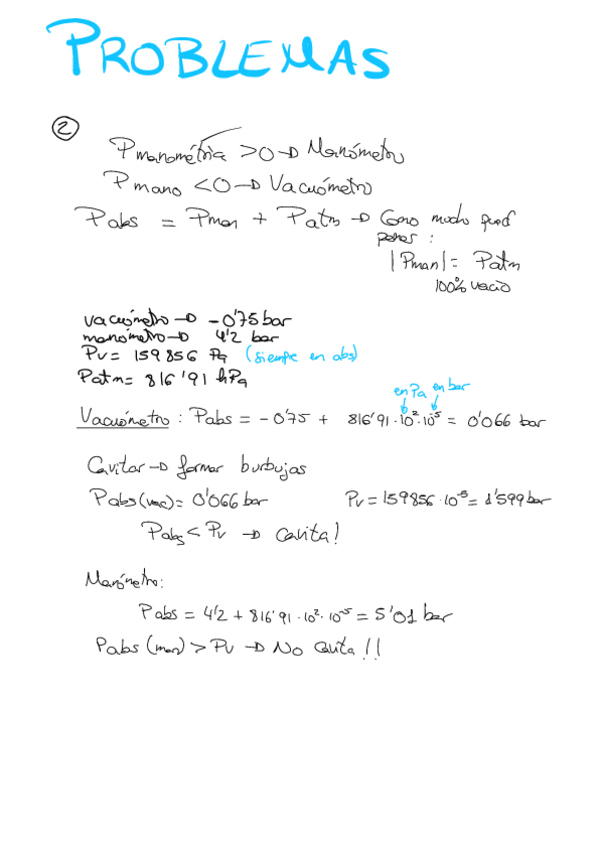 PROBLEMAS
②
Pmanométrica > 0 → Manómetro
Pmano < 0 → Vacuómetro
Pabs = Pman + Patm → Como mucho
pasar :
|Pman| = Patm
100% vacío
vacuómetro → -0'75 bar
manómetro → 4'2 bar
Pv = 159856 Pa (siempre en abs)
Patm = 816'91 hPa
en Pa en bar
Vacuómetro : Pabs = -0'75 + 816'91 · 10² · 10⁻⁵ = 0'066 bar
Cavitar → formar burbujas
Pabs (vac) = 0'066 bar Pv = 159856 · 10⁻⁵ = 1'599 bar
Pabs < Pv → Cavita!
Manómetro:
Pabs = 4'2 + 816'91 · 10² · 10⁻⁵ = 5'01 bar
Pabs (man) > Pv → No Cavita!!